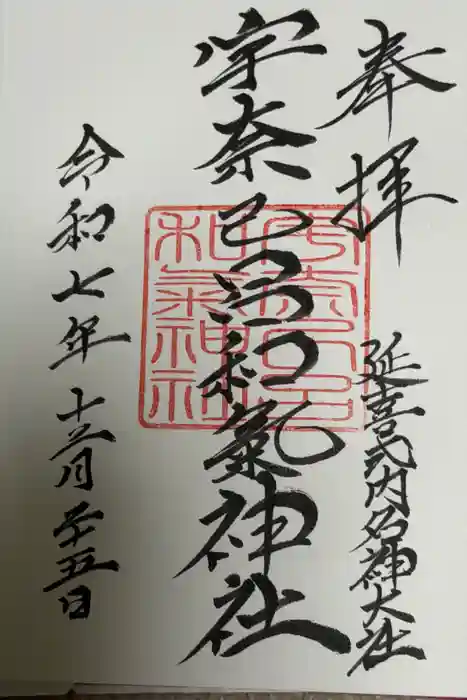 奉拝
延喜式内名神大社
宇奈己呂和氣神社
令和七年十二月二十五日
宇奈己呂
和氣神社